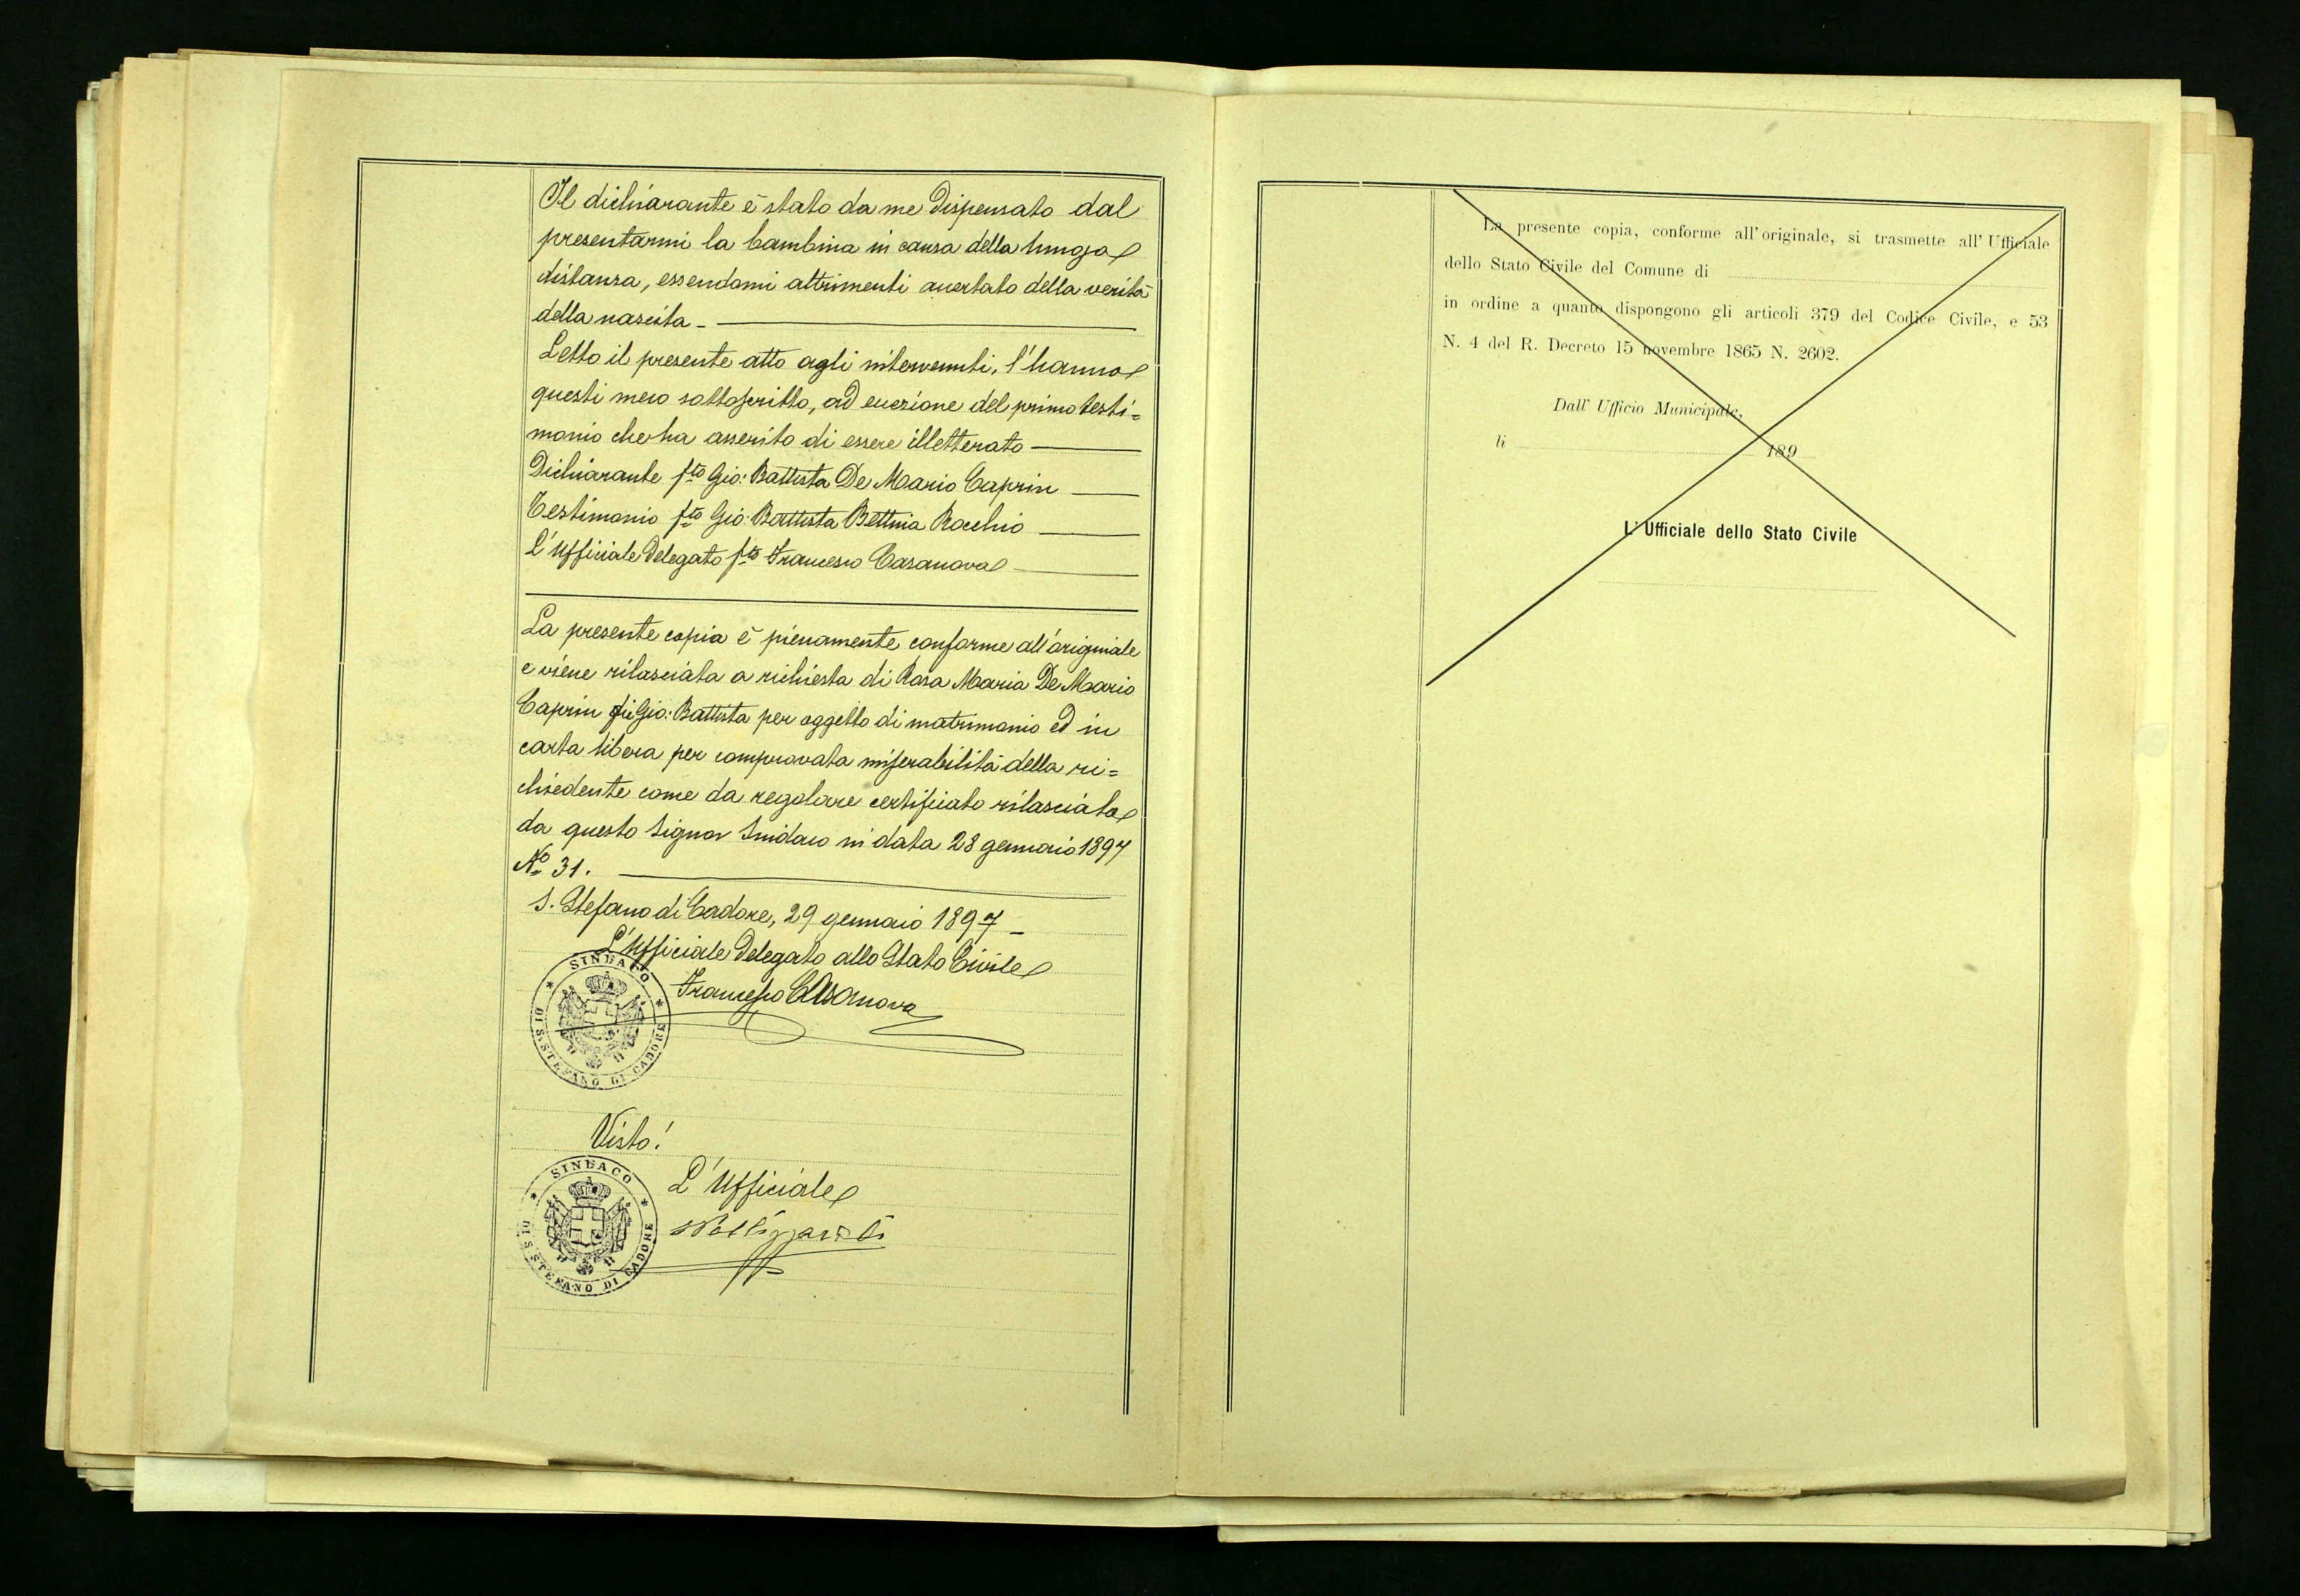 Il dichiarante è stato da me dispensato dal
presentarmi la bambina in causa della lunga
distanza, essendomi altrimenti accertato della verità
della nascita -
Letto il presente atto agli intervenuti, l'hanno
questi meco sottoscritto, ad eccezione del primo testi=
monio che ha asserito di essere illetterato
Dichiarante fto Gio: Battista De Mario Caprin
Testimonio fto Gio: Battista Bettina Rocchio
L'Ufficiale Delegato fto Francesco Casanova
La presente copia è pienamente conforme all'originale
e viene rilasciata a richiesta di Rosa Maria De Mario
Caprin di Gio: Battista per oggetto di matrimonio ed in
carta libera per comprovata miserabilità della ri=
chiedente come da regolare certificato rilasciato
da questo Signor Sindaco in data 28 gennaio 1897
No 31.
S. Stefano di Cadore, 29 gennaio 1897 -
L'Ufficiale Delegato allo Stato Civile
Francesco Casanova
SINDACO
DI S. STEFANO DI CADORE
Visto!
L'Ufficiale
SINDACO
DI S. STEFANO DI CADORE
La presente copia, conforme all'originale, si trasmette all'Ufficiale
dello Stato Civile del Comune di
in ordine a quanto dispongono gli articoli 379 del Codice Civile, e 53
N. 4 del R. Decreto 15 novembre 1865 N. 2602.
Dall' Ufficio Municipale,
li 189
L' Ufficiale dello Stato Civile